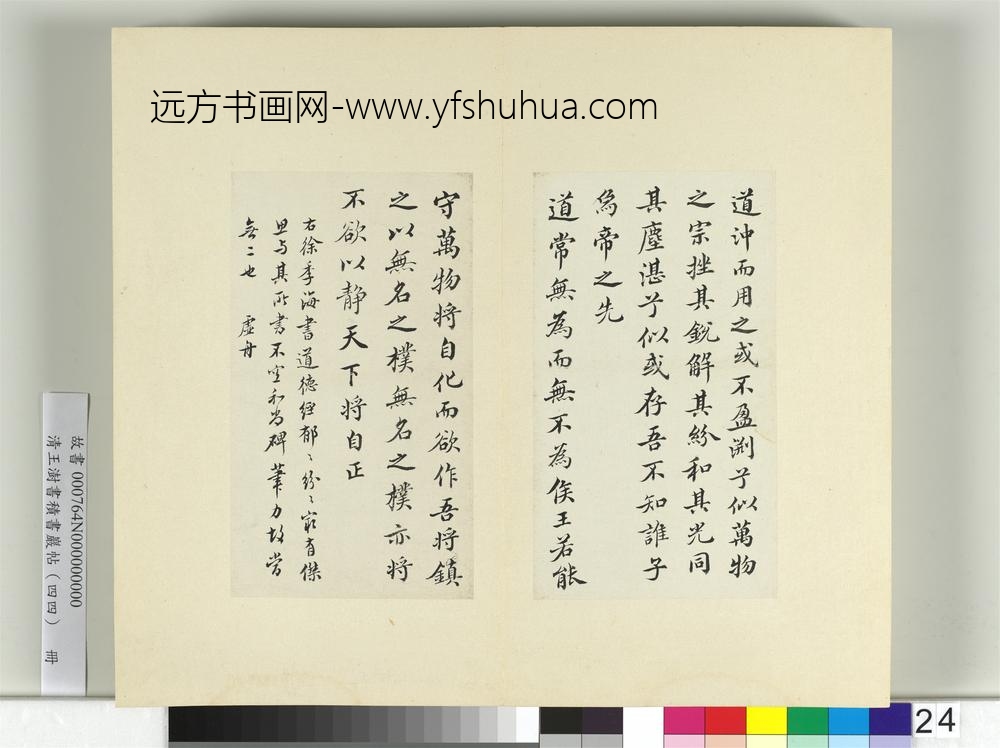 远方书画网-www.yfshuhua.com
道沖而用之或不盈淵乎似萬物
之宗挫其銳解其紛和其光同
其塵湛乎似或存吾不知誰子
為帝之先
道常無為而無不為侯王若能
守萬物将自化而欲作吾将鎮
之以無名之樸無名之樸亦将
不欲以静天下将自正
右徐季海書道德經郁〻紛〻最有傑
思与其所書不空和尚碑筆力故當
無二也 虛舟
故書 000764N000000000
清王澍書積書巖帖（四四） 冊
24